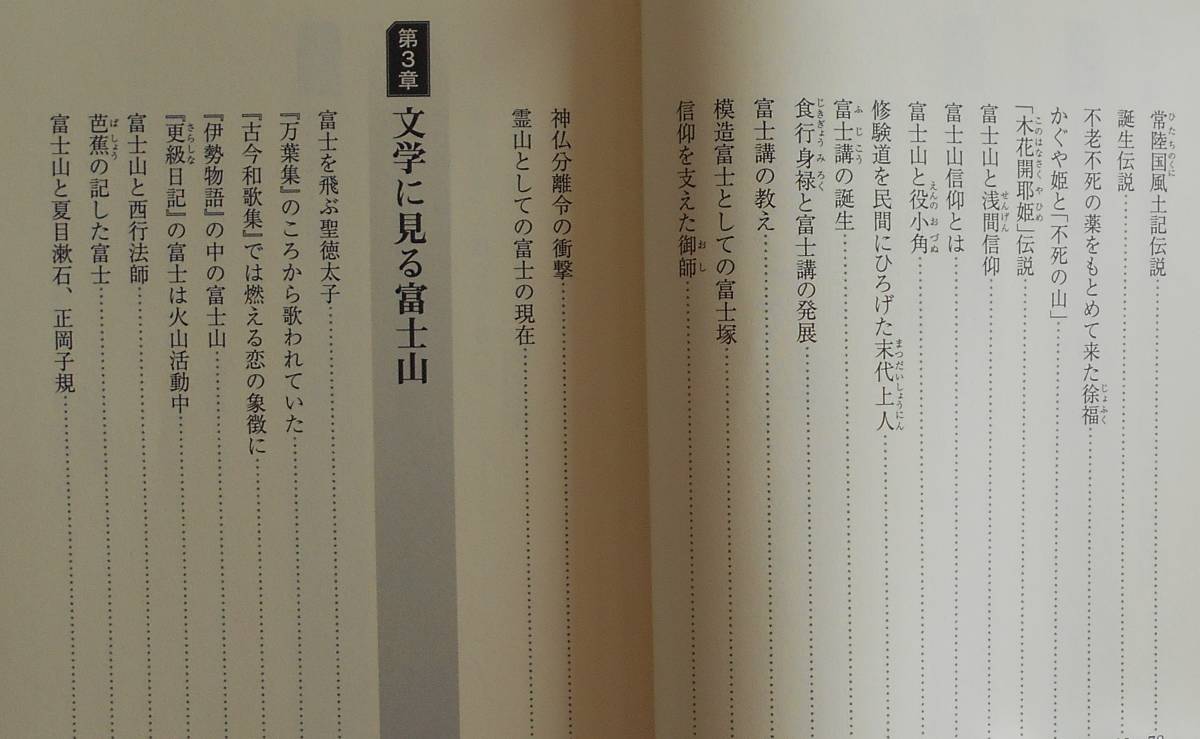 常陸国風土記伝説
誕生伝説
不老不死の薬をもとめて来た徐福
かぐや姫と「不死の山」
「木花開耶姫」伝説
富士山と浅間信仰
富士山信仰とは
富士山と役小角
修験道を民間にひろげた末代上人
富士講の誕生
食行身禄と富士講の発展
富士講の教え
模造富士としての富士塚
信仰を支えた御師
神仏分離令の衝撃
霊山としての富士の現在
第3章 文学に見る富士山
富士を飛ぶ聖徳太子
『万葉集』のころから歌われていた
『古今和歌集』では燃える恋の象徴に
『伊勢物語』の中の富士山
『更級日記』の富士は火山活動中
富士山と西行法師
芭蕉の記した富士
富士山と夏目漱石、正岡子規